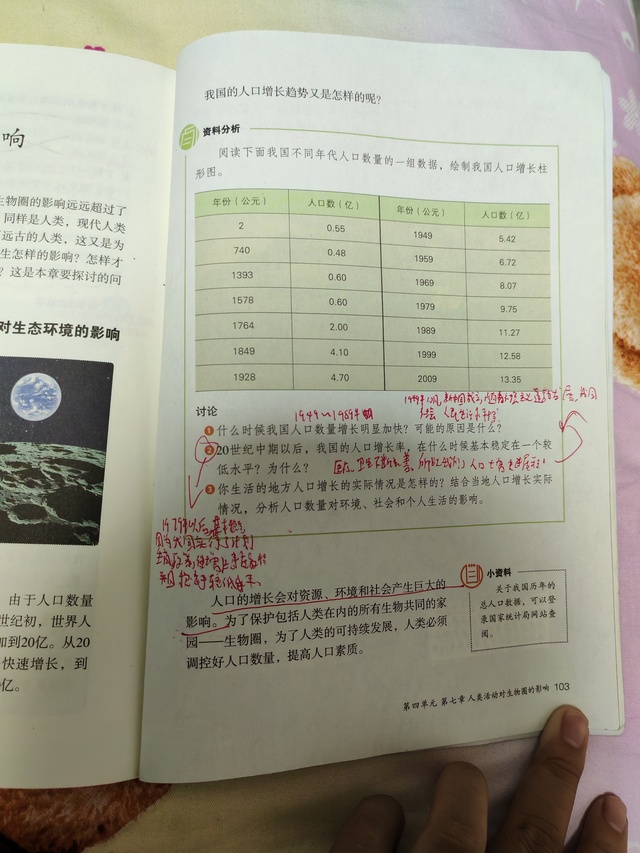 响
生物圈的影响远远超过了
同样是人类，现代人类
远古的人类，这又是为
生怎样的影响？怎样才
？这是本章要探讨的问
对生态环境的影响
由于人口数量
世纪初，世界人
加到20亿。从20
快速增长，到
亿。
我国的人口增长趋势又是怎样的呢？
资料分析
阅读下面我国不同年代人口数量的一组数据，绘制我国人口增长柱
形图。
年份（公元） 人口数（亿） 年份（公元） 人口数（亿）
2 0.55 1949 5.42
740 0.48 1959 6.72
1393 0.60 1969 8.07
1578 0.60 1979 9.75
1764 2.00 1989 11.27
1849 4.10 1999 12.58
1928 4.70 2009 13.35
讨论
1949～1989年
1 什么时候我国人口数量增长明显加快？可能的原因是什么？
2 20世纪中期以后，我国的人口增长率，在什么时候基本稳定在一个较
低水平？为什么？
3 你生活的地方人口增长的实际情况是怎样的？结合当地人口增长实际
情况，分析人口数量对环境、社会和个人生活的影响。
1979年以后
人口的增长会对资源、环境和社会产生巨大的
影响。为了保护包括人类在内的所有生物共同的家
园——生物圈，为了人类的可持续发展，人类必须
调控好人口数量，提高人口素质。
小资料
关于我国历年的
总人口数据，可以登
录国家统计局网站查
阅。
第四单元 第七章 人类活动对生物圈的影响 103